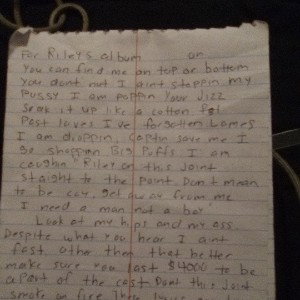 For Riley's album on
You can find me on top or bottom
You dont nut I aint stoppin my
Pussy I am poppin your Jizz
Soak it up like a cotton
Past loves I've forgotten Lames
I am droppin, Captin save me I
go shoppin, Big Puffs I am
caughin Riley on this Joint
Staight to the point Don't mean
to be coy, get away from me
I need a man not a boy
Look at my hips and my ass
Despite what you hear I aint
fast, other then that better
make sure you last $4000 to be
apart of the cast Dont this Joint
smoke on fire These